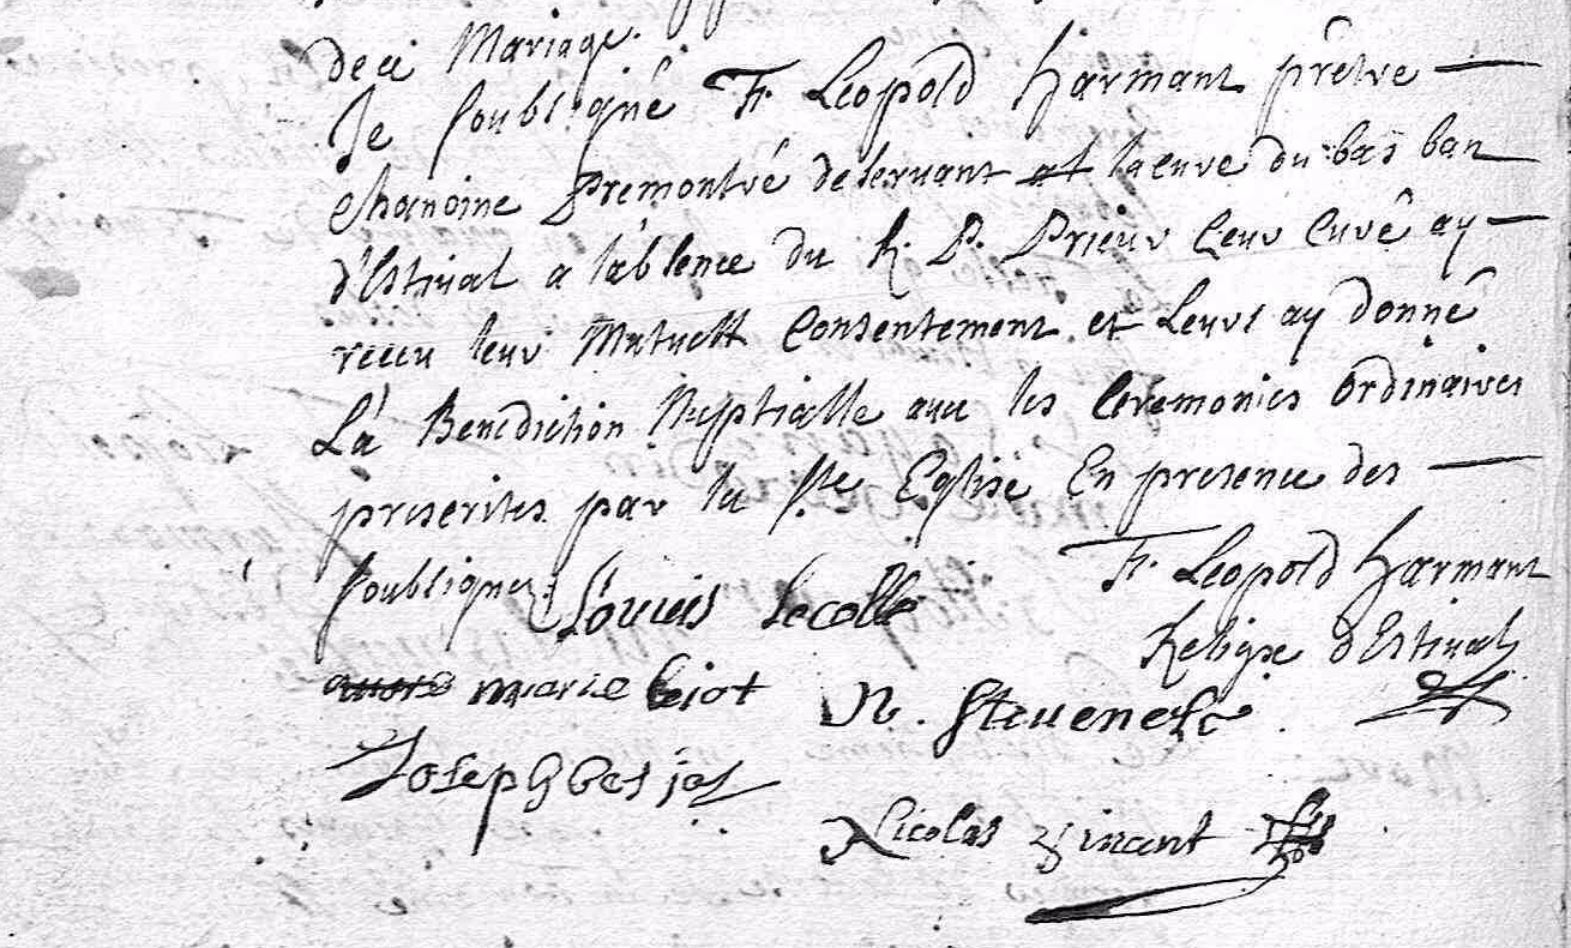 de ce Mariage.
Je soubsigné Fr. Leopold Harmant prêtre
Chanoine Premontré deservant la cure du bas ban
d'Estival a l'absence du R. P. Prieur Leur Curé ay
receu leur Mutuell Consentement et Leurs ay donné
La Benediction Nuptialle avec les Ceremonies Ordinaires
prescrites par la Ste Eglise En presence des
soubsignez. Fr. Leopold Harmant
Louis Lecolle
Religse d'Estival
marie
N. Steuenel
Joseph
Nicolas Vinant